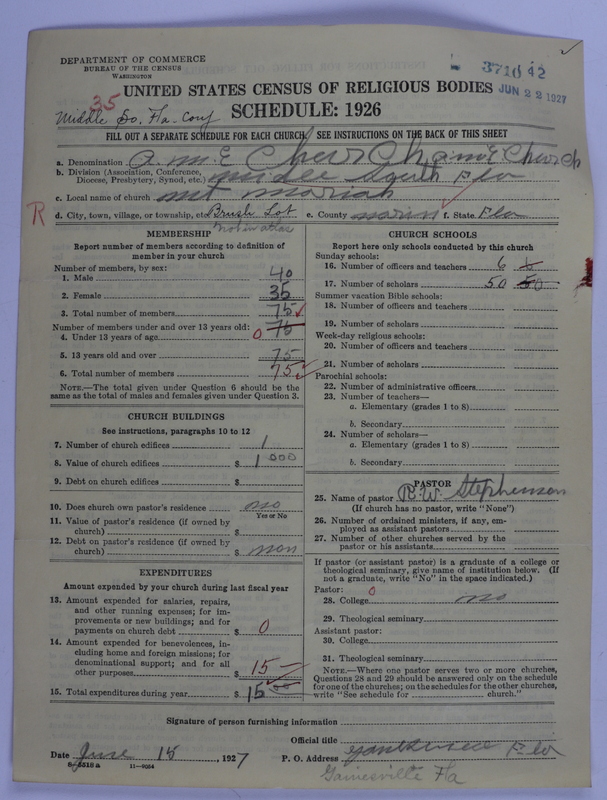 DEPARTMENT OF COMMERCE
BUREAU OF THE CENSUS
WASHINGTON
3710 42
JUN 22 1927
UNITED STATES CENSUS OF RELIGIOUS BODIES
35
Middle So. Fla. Conf
SCHEDULE: 1926
FILL OUT A SEPARATE SCHEDULE FOR EACH CHURCH. SEE INSTRUCTIONS ON THE BACK OF THIS SHEET
a. Denomination A.M.E Church am E Church
b. Division (Association, Conference, Diocese, Presbytery, Synod, etc.) South Flo
c. Local name of church mt moriah
R d. City, town, village, or township, etc. Brush Lot e. County f. State Flo
Not in atlas
MEMBERSHIP
Report number of members according to definition of member in your church
Number of members, by sex:
1. Male 40
2. Female 35
3. Total number of members 75
Number of members under and over 13 years old:
4. Under 13 years of age 0 75
5. 13 years old and over 75
6. Total number of members 75
NOTE.—The total given under Question 6 should be the same as the total of males and females given under Question 3.
CHURCH BUILDINGS
See instructions, paragraphs 10 to 12
7. Number of church edifices 1
8. Value of church edifices $ 1000
9. Debt on church edifices $
10. Does church own pastor's residence no
Yes or No
11. Value of pastor's residence (if owned by church) $
12. Debt on pastor's residence (if owned by church) $ non
EXPENDITURES
Amount expended by your church during last fiscal year
13. Amount expended for salaries, repairs, and other running expenses; for improvements or new buildings; and for payments on church debt $ 0
14. Amount expended for benevolences, including home and foreign missions; for denominational support; and for all other purposes $ 15
15. Total expenditures during year $ 15 00
CHURCH SCHOOLS
Report here only schools conducted by this church
Sunday schools:
16. Number of officers and teachers 6
17. Number of scholars 50 50
Summer vacation Bible schools:
18. Number of officers and teachers
19. Number of scholars
Week-day religious schools:
20. Number of officers and teachers
21. Number of scholars
Parochial schools:
22. Number of administrative officers
23. Number of teachers—
a. Elementary (grades 1 to 8)
b. Secondary
24. Number of scholars—
a. Elementary (grades 1 to 8)
b. Secondary
PASTOR
25. Name of pastor R. W. Stephenson
(If church has no pastor, write "None")
26. Number of ordained ministers, if any, employed as assistant pastors
27. Number of other churches served by the pastor or his assistants
If pastor (or assistant pastor) is a graduate of a college or theological seminary, give name of institution below. (If not a graduate, write "No" in the space indicated.)
Pastor: 0
28. College no
29. Theological seminary
Assistant pastor:
30. College
31. Theological seminary
NOTE.—Where one pastor serves two or more churches, Questions 28 and 29 should be answered only on the schedule for one of the churches; on the schedules for the other churches, write "See schedule for church."
Signature of person furnishing information
Official title
Date June 18, 1927 P. O. Address Flo
8-5518 a 11-9084
Gainesville Fla